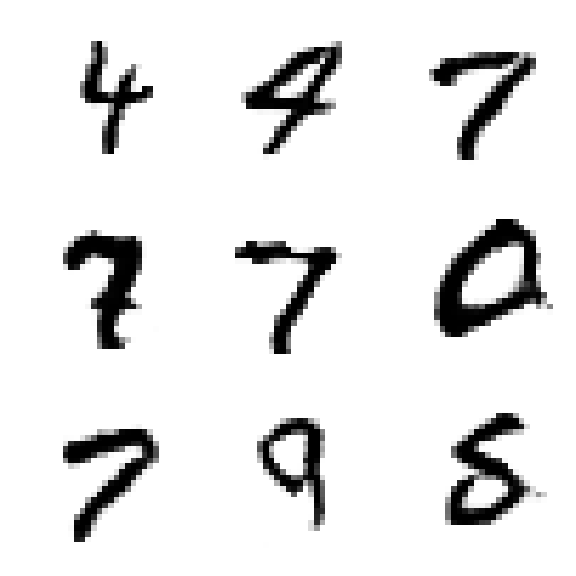 4 4 7
7 7 0
7 9 8